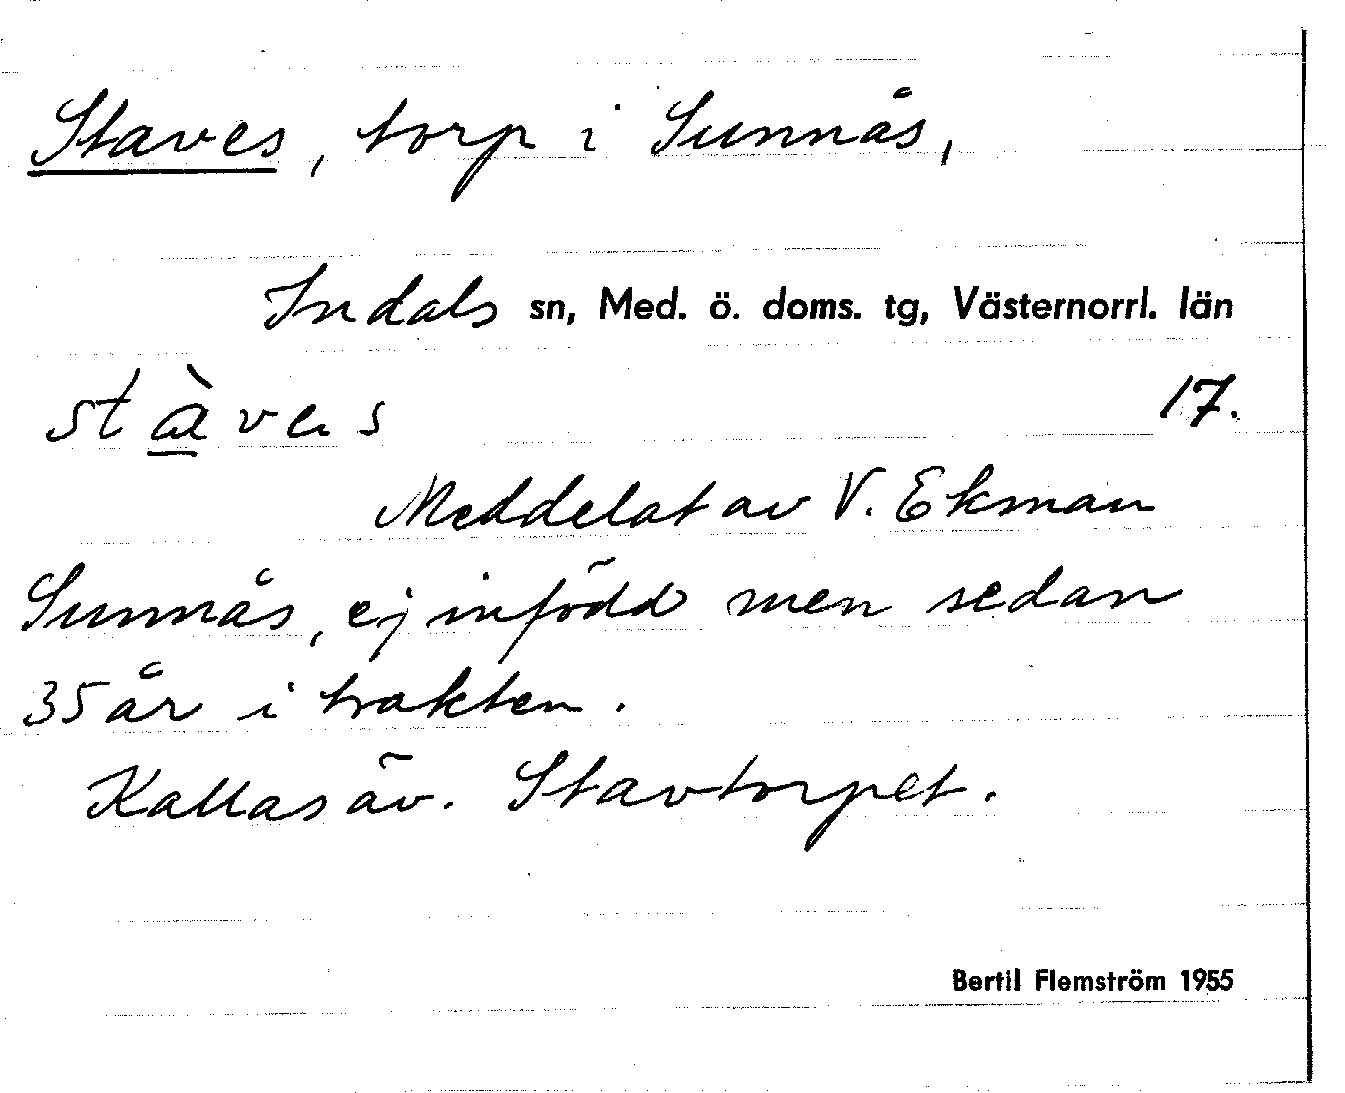 Staves, torp i Sunnås,
Indals sn, Med. ö. doms. tg, Västernorrl. län
17.
Meddelat av V. Ekman
Sunnås, ej infödd men sedan
35 år i trakten.
Kallas äv. Stavtorpet.
Bertil Flemström 1955